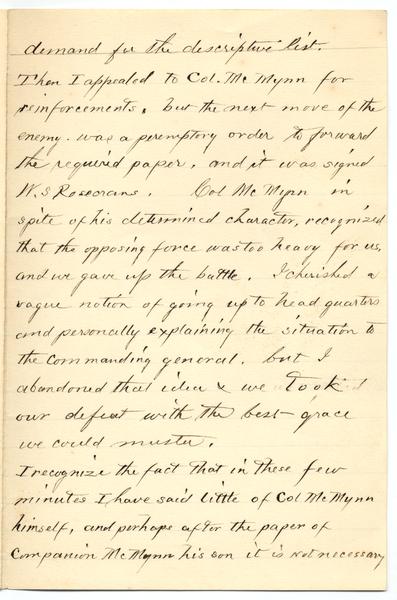 demand for the descriptive list.
Then I appealed to Col. Mc Mynn for
reinforcements, but the next move of the
enemy. was a peremptory order to forward
the required paper, and it was signed
W. S. Rosecrans. Col Mc Mynn in
spite of his determined character, recognized
that the opposing force was too heavy for us,
and we gave up the battle. I cherished a
vague notion of going up to head quarters
and personally explaining the situation to
the commanding general, but I
abandoned that idea & we took
our defeat with the best grace
we could muster.
I recognize the fact that in these few
minutes I have said little of Col McMynn
himself, and perhaps after the paper of
Companion McMynn his son it is not necessary